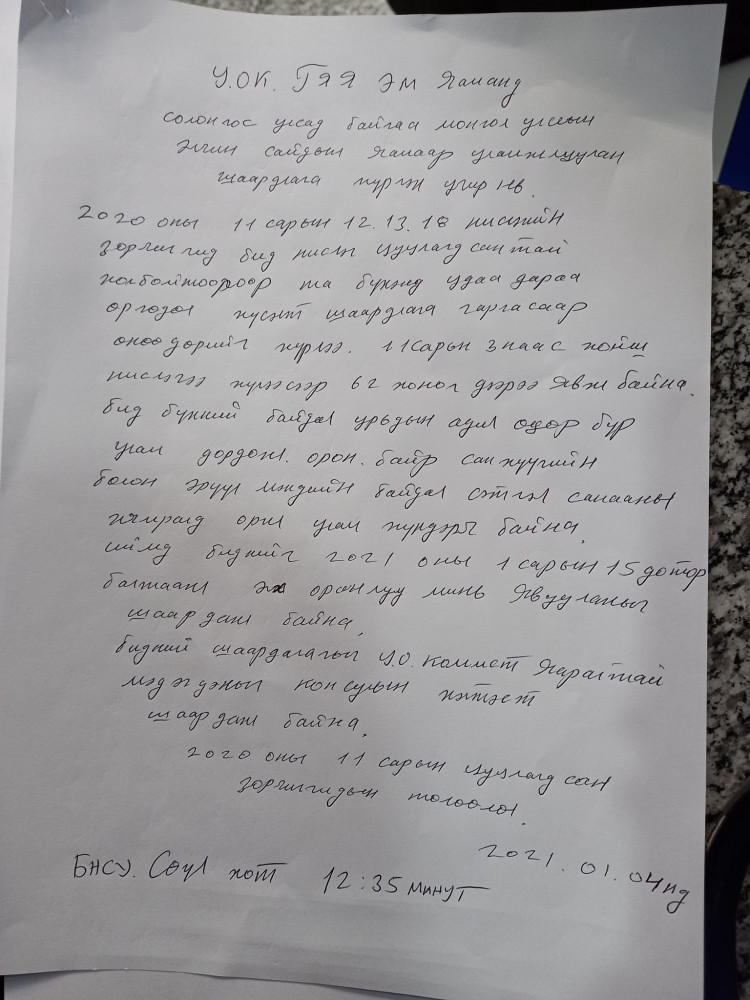 У.ОК. ГЯЯ ЭМ Яаманд
солонгос улсад байгаа монгол улсын
Элчин сайдын Яамаар уламжлуулан
шаардлага хүргэж учир нь.
2020 оны 11 сарын 12.13.18 нислэгийн
зорчигчид бид нислэг цуцлагдсантай
холбоотойгоор та бүхэнд удаа дараа
өргөдөл хүсэлт шаардлага гаргасаар
өнөөдөрийг хүрлээ. 11 сарын 3 наас хойш
нислэгээ хүлээсээр 62 хоног дээрээ явж байна.
бид бүхний байдал урьдын адил өдөр бүр
улам дордож. орон. байр санхүүгийн
болон эрүүл мэндийн байдал сэтгэл санааны
хямралд орж улам хүндэрч байна.
иймд биднийг 2021 оны 1 сарын 15 дотор
багтааж эх орон луу минь явууланыг
шаардаж байна.
бидний шаардлагыг У.О. Комист Яаралтай
мэдэгдэхыг консулын хэлтэст
шаардаж байна.
2020 оны 11 сарын цуцлагдсан
зорчигчидын төлөөлөл.
2021.01.04нд
БНСУ. Сөүл хот 12:35 минут